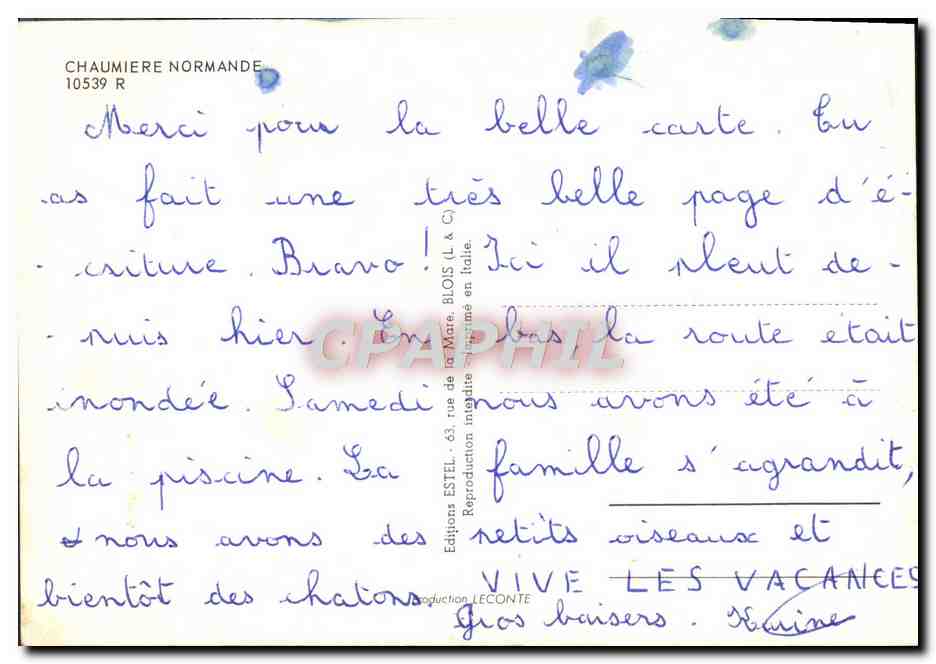 CHAUMIERE NORMANDE
10539 R
Merci pour la belle carte. Tu
as fait une très belle page d'é-
- criture. Bravo! Ici il pleut de-
- puis hier. En bas, la route était
inondée. Samedi nous avons été à
la piscine. La famille s'agrandit,
nous avons des petits oiseaux et
bientôt des chatons. VIVE LES VACANCES
Gros baisers. Karine
Editions ESTEL - 63, rue de la Mare, BLOIS (L. & C.)
Reproduction interdite - Imprimé en Italie.
Production LECONTE
CPAPHIL